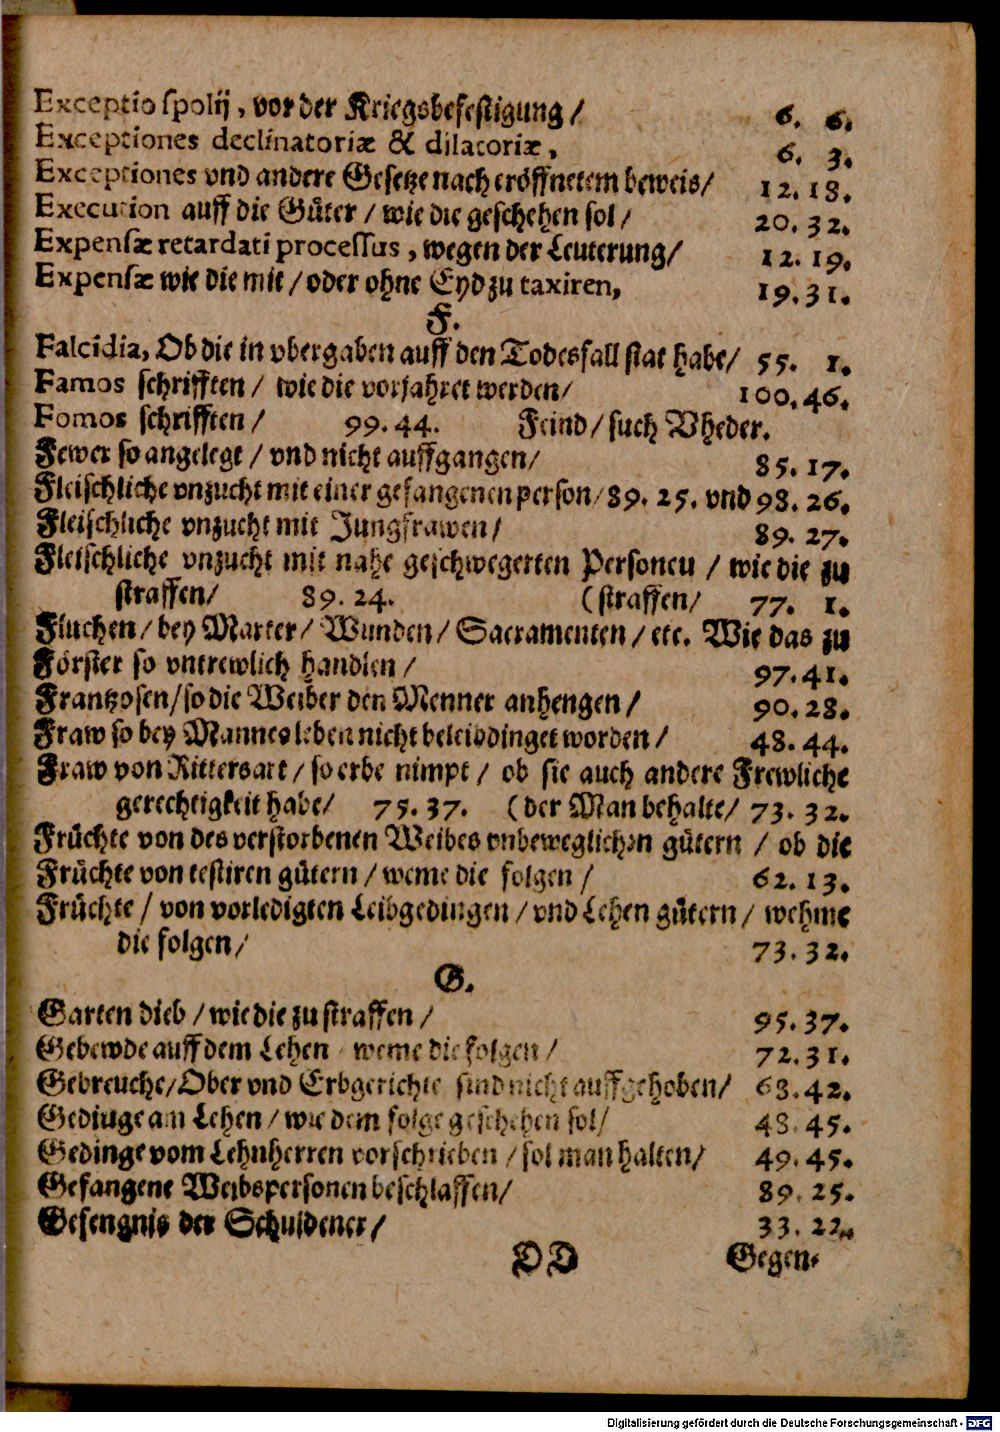 Exceptio spolij, vor der Kriegsbefestigung / 6. 6.
Exceptiones declinatoriæ & dilatoriæ, 6. 3.
Exceptiones vnd andere Gesetze nach eröffnetem beweis / 12. 18.
Execution auff die Güter / wie die geschehen sol / 20. 32.
Expensæ retardati processus, wegen der Leuterung / 12. 19.
Expensæ wie die mit / oder ohne Eyd zu taxiren, 19. 31.
F.
Falcidia, Ob die in vbergaben auff den Todesfall stat habe / 55. 1.
Famos schrifften / wie die vorjahret werden / 100. 46.
Fomos schrifften / 99. 44. Feind / such Vheder.
Fewer so angelegt / vnd nicht auffgangen / 85. 17.
Fleischliche vnzucht mit einer gefangenen person / 89. 25. vnd 98. 26.
Fleischliche vnzucht mit Jungfrawen / 89. 27.
Fleischliche vnzucht mit nahe geschwegerten Personeu / wie die zu
straffen / 89. 24. (straffen / 77. 1.
Fluchen / bey Marter / Wunden / Sacramenten / etc. Wie das zu
Förster so vntrewlich handlen / 97. 41.
Frantzosen / so die Weiber den Menner anhengen / 90. 28.
Fraw so bey Mannes leben nicht beleibdinget worden / 48. 44.
Fraw von Rittersart / so erbe nimpt / ob sie auch andere Frewliche
gerechtigkeit habe / 75. 37. (der Man behalte / 73. 32.
Früchte von des verstorbenen Weibes vnbeweglichen gütern / ob die
Früchte von testiren gütern / weme die folgen / 62. 13.
Früchte / von vorledigten Leibgedingen / vnd Lehen gütern / wehme
die folgen / 73. 32.
G.
Garten dieb / wie die zu straffen / 95. 37.
Gebewde auff dem Lehen weme die folgen / 72. 31.
Gebreuche / Ober vnd Erbgerichte sind nicht auffgehoben / 63. 42.
Gedinge am Lehen / wie dem folge geschehen sol / 48. 45.
Gedinge vom Lehnherren vorschrieben / sol man halten / 49. 45.
Gefangene Weibspersonen beschlaffen / 89. 25.
Gefengnis der Schuldener / 33. 22.
DD Gegen-
Digitalisierung gefördert durch die Deutsche Forschungsgemeinschaft - DFG